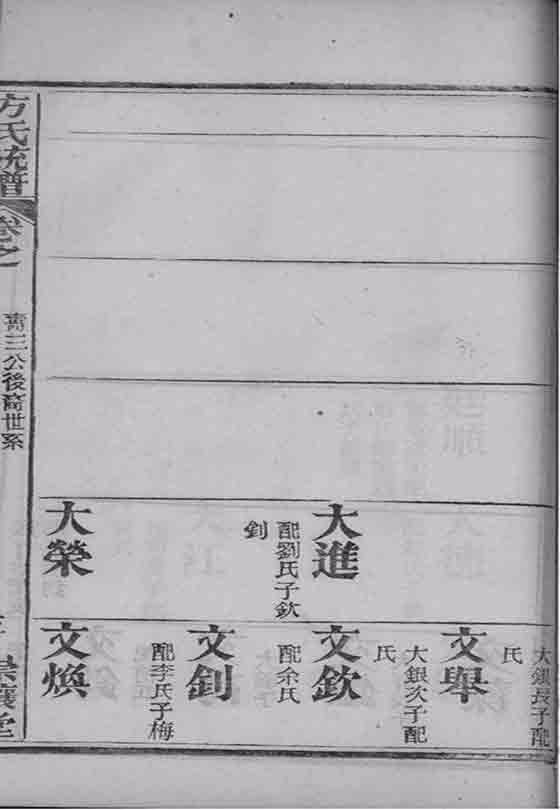 大進
配劉氏子欽
釗
大榮
大銀長子配
氏
文舉
大銀次子配
氏
文欽
配余氏
文釗
配李氏子梅
文煥
方氏統譜
卷之
壽三公後裔世系